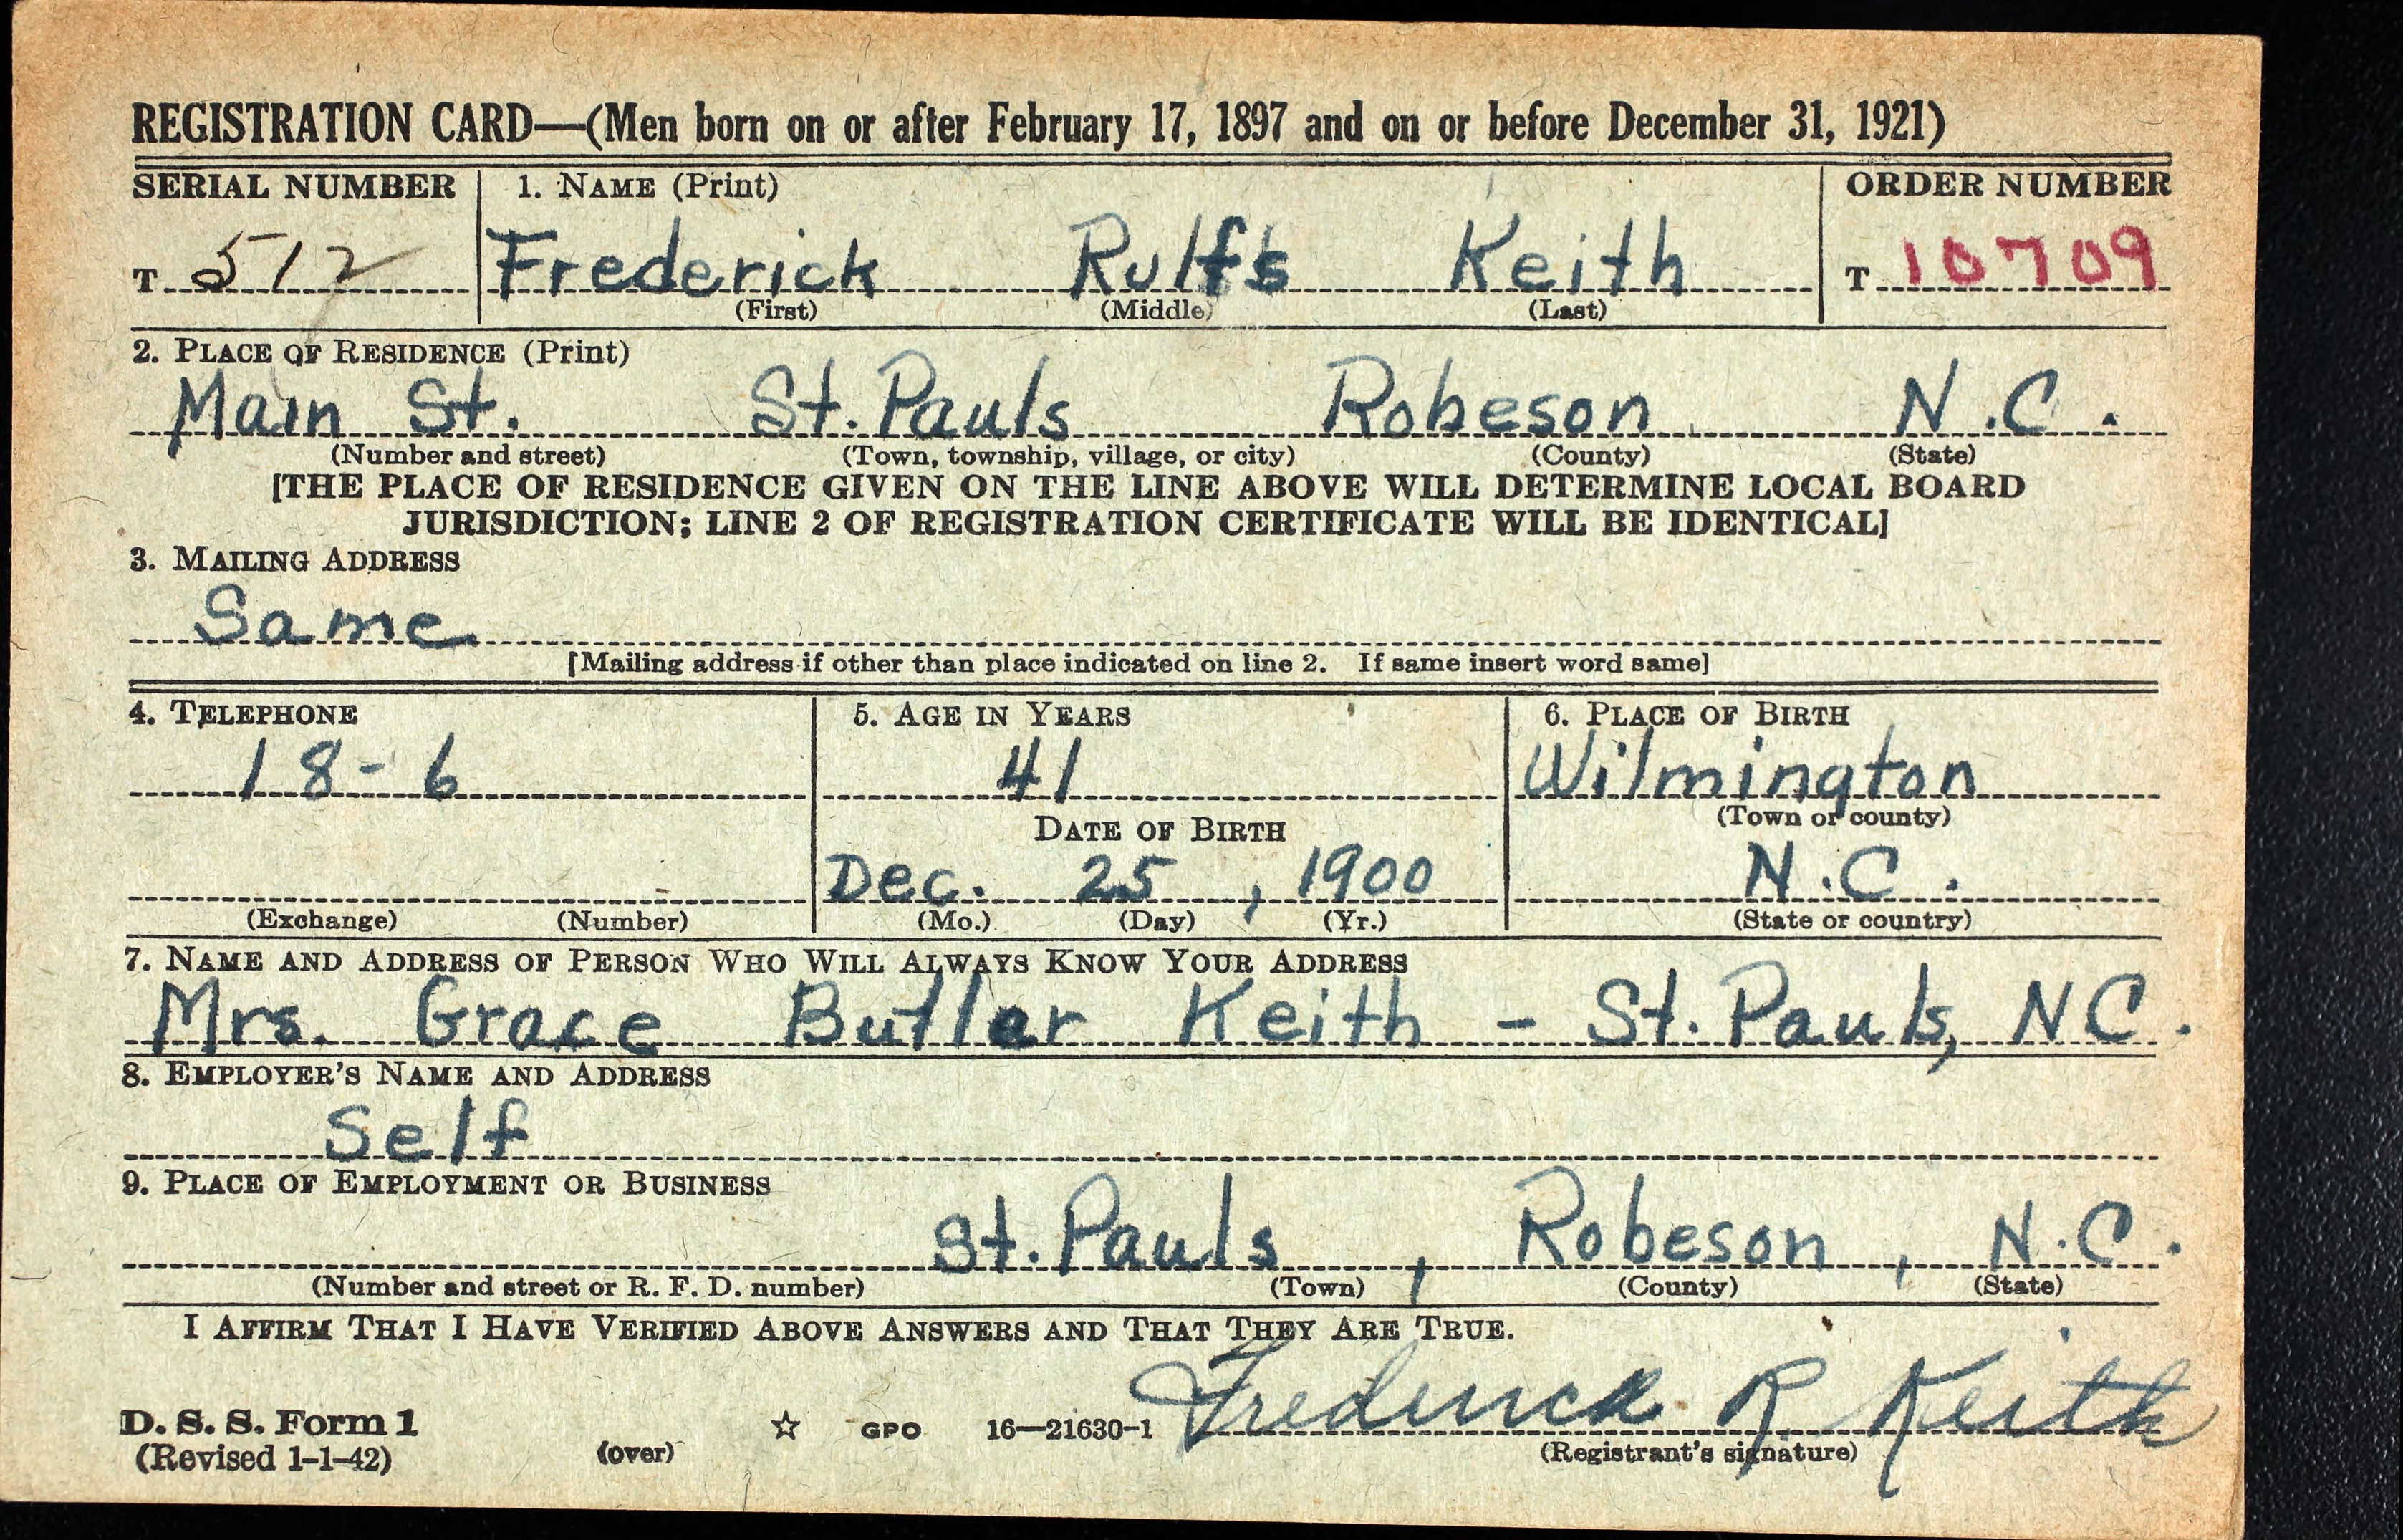 REGISTRATION CARD—(Men born on or after February 17, 1897 and on or before December 31, 1921)
SERIAL NUMBER 1. NAME (Print) ORDER NUMBER
T 512 Frederick Rulfs Keith T 10709
(First) (Middle) (Last)
2. PLACE OF RESIDENCE (Print)
Main St. St. Pauls Robeson N.C.
(Number and street) (Town, township, village, or city) (County) (State)
[THE PLACE OF RESIDENCE GIVEN ON THE LINE ABOVE WILL DETERMINE LOCAL BOARD
JURISDICTION; LINE 2 OF REGISTRATION CERTIFICATE WILL BE IDENTICAL]
3. MAILING ADDRESS
Same
[Mailing address if other than place indicated on line 2. If same insert word same]
4. TELEPHONE 5. AGE IN YEARS 6. PLACE OF BIRTH
18-6 41 Wilmington
(Town or county)
DATE OF BIRTH
Dec. 25, 1900 N.C.
(Exchange) (Number) (Mo.) (Day) (Yr.) (State or country)
7. NAME AND ADDRESS OF PERSON WHO WILL ALWAYS KNOW YOUR ADDRESS
Mrs. Grace Butler Keith - St. Pauls, NC.
8. EMPLOYER'S NAME AND ADDRESS
Self
9. PLACE OF EMPLOYMENT OR BUSINESS
St. Pauls, Robeson, N.C.
(Number and street or R. F. D. number) (Town) (County) (State)
I AFFIRM THAT I HAVE VERIFIED ABOVE ANSWERS AND THAT THEY ARE TRUE.
Frederick R. Keith
D. S. S. Form 1 ☆ GPO 16—21630-1
(Revised 1-1-42) (over) (Registrant's signature)